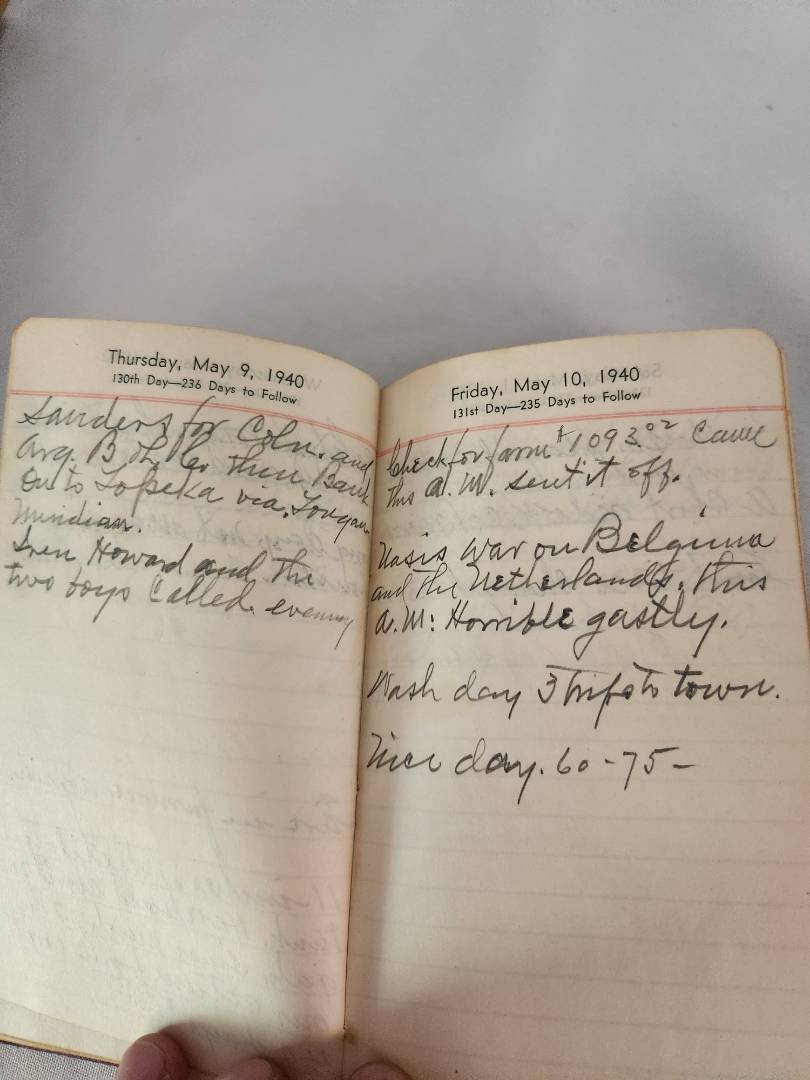 Thursday, May 9, 1940
130th Day—236 Days to Follow
Sanders for Coln. and
Arg. B of L Co. then Bank
On to Topeka via, Tongan.
Meridian.
Iren Howard and the
two boys Called. evening
Friday, May 10, 1940
131st Day—235 Days to Follow
Check for farm $1093.02 Came
this A.M. sent it off.
Nasis war on Belgium
and the Netherlands, this
A.M: Horrible gastly.
Wash day 3 trips to town.
Nice day. 60-75-